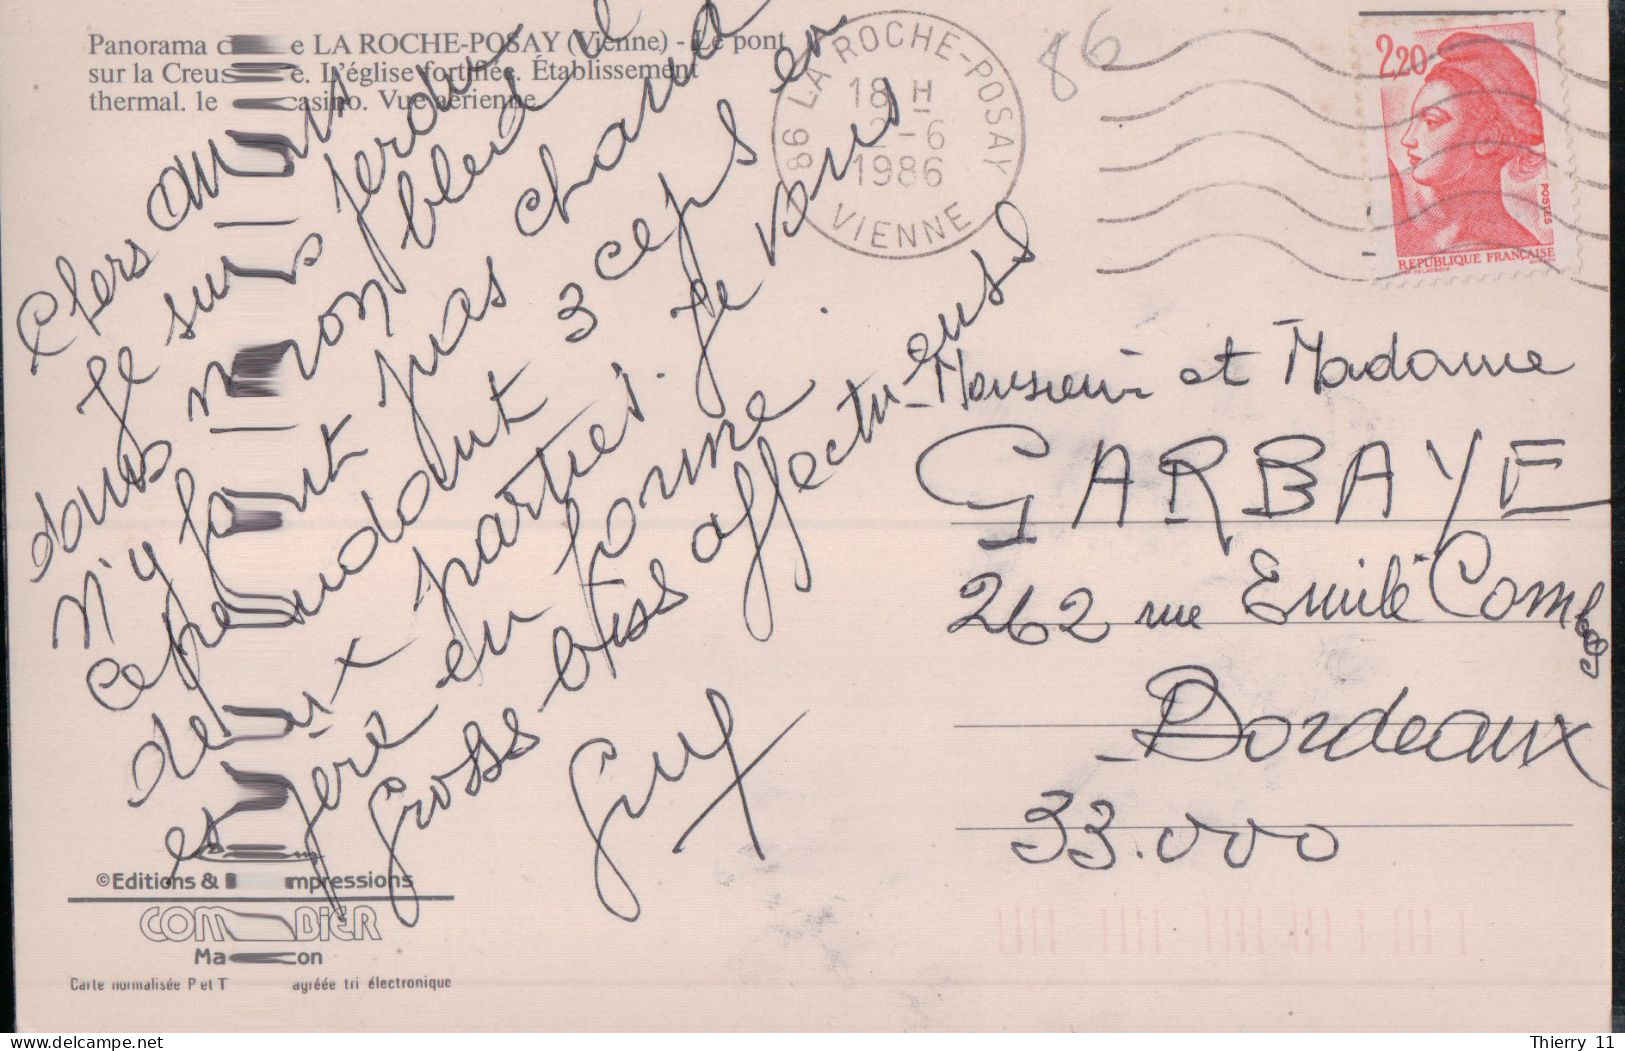 Panorama de LA ROCHE-POSAY (Vienne) - Le pont
sur la Creuse. L'église fortifiée. Établissement
thermal. le casino. Vue aérienne
86 LA ROCHE-POSAY
18 H
2-6
1986
VIENNE
86
2,20
POSTES
REPUBLIQUE FRANÇAISE
Chers amis
Je suis perdu
dans mon bled il
n'y fait pas chaud
cependant 3 ceps en
deux parties. Je vous
espère en forme.
Grosses bises affectueuses
Guy
Monsieur et Madame
GARBAYE
262 rue Emile Combes
Bordeaux
33.000
©Editions & Impressions
COMBIER
Macon
Carte normalisée P et T agréée tri électronique
Thierry 11